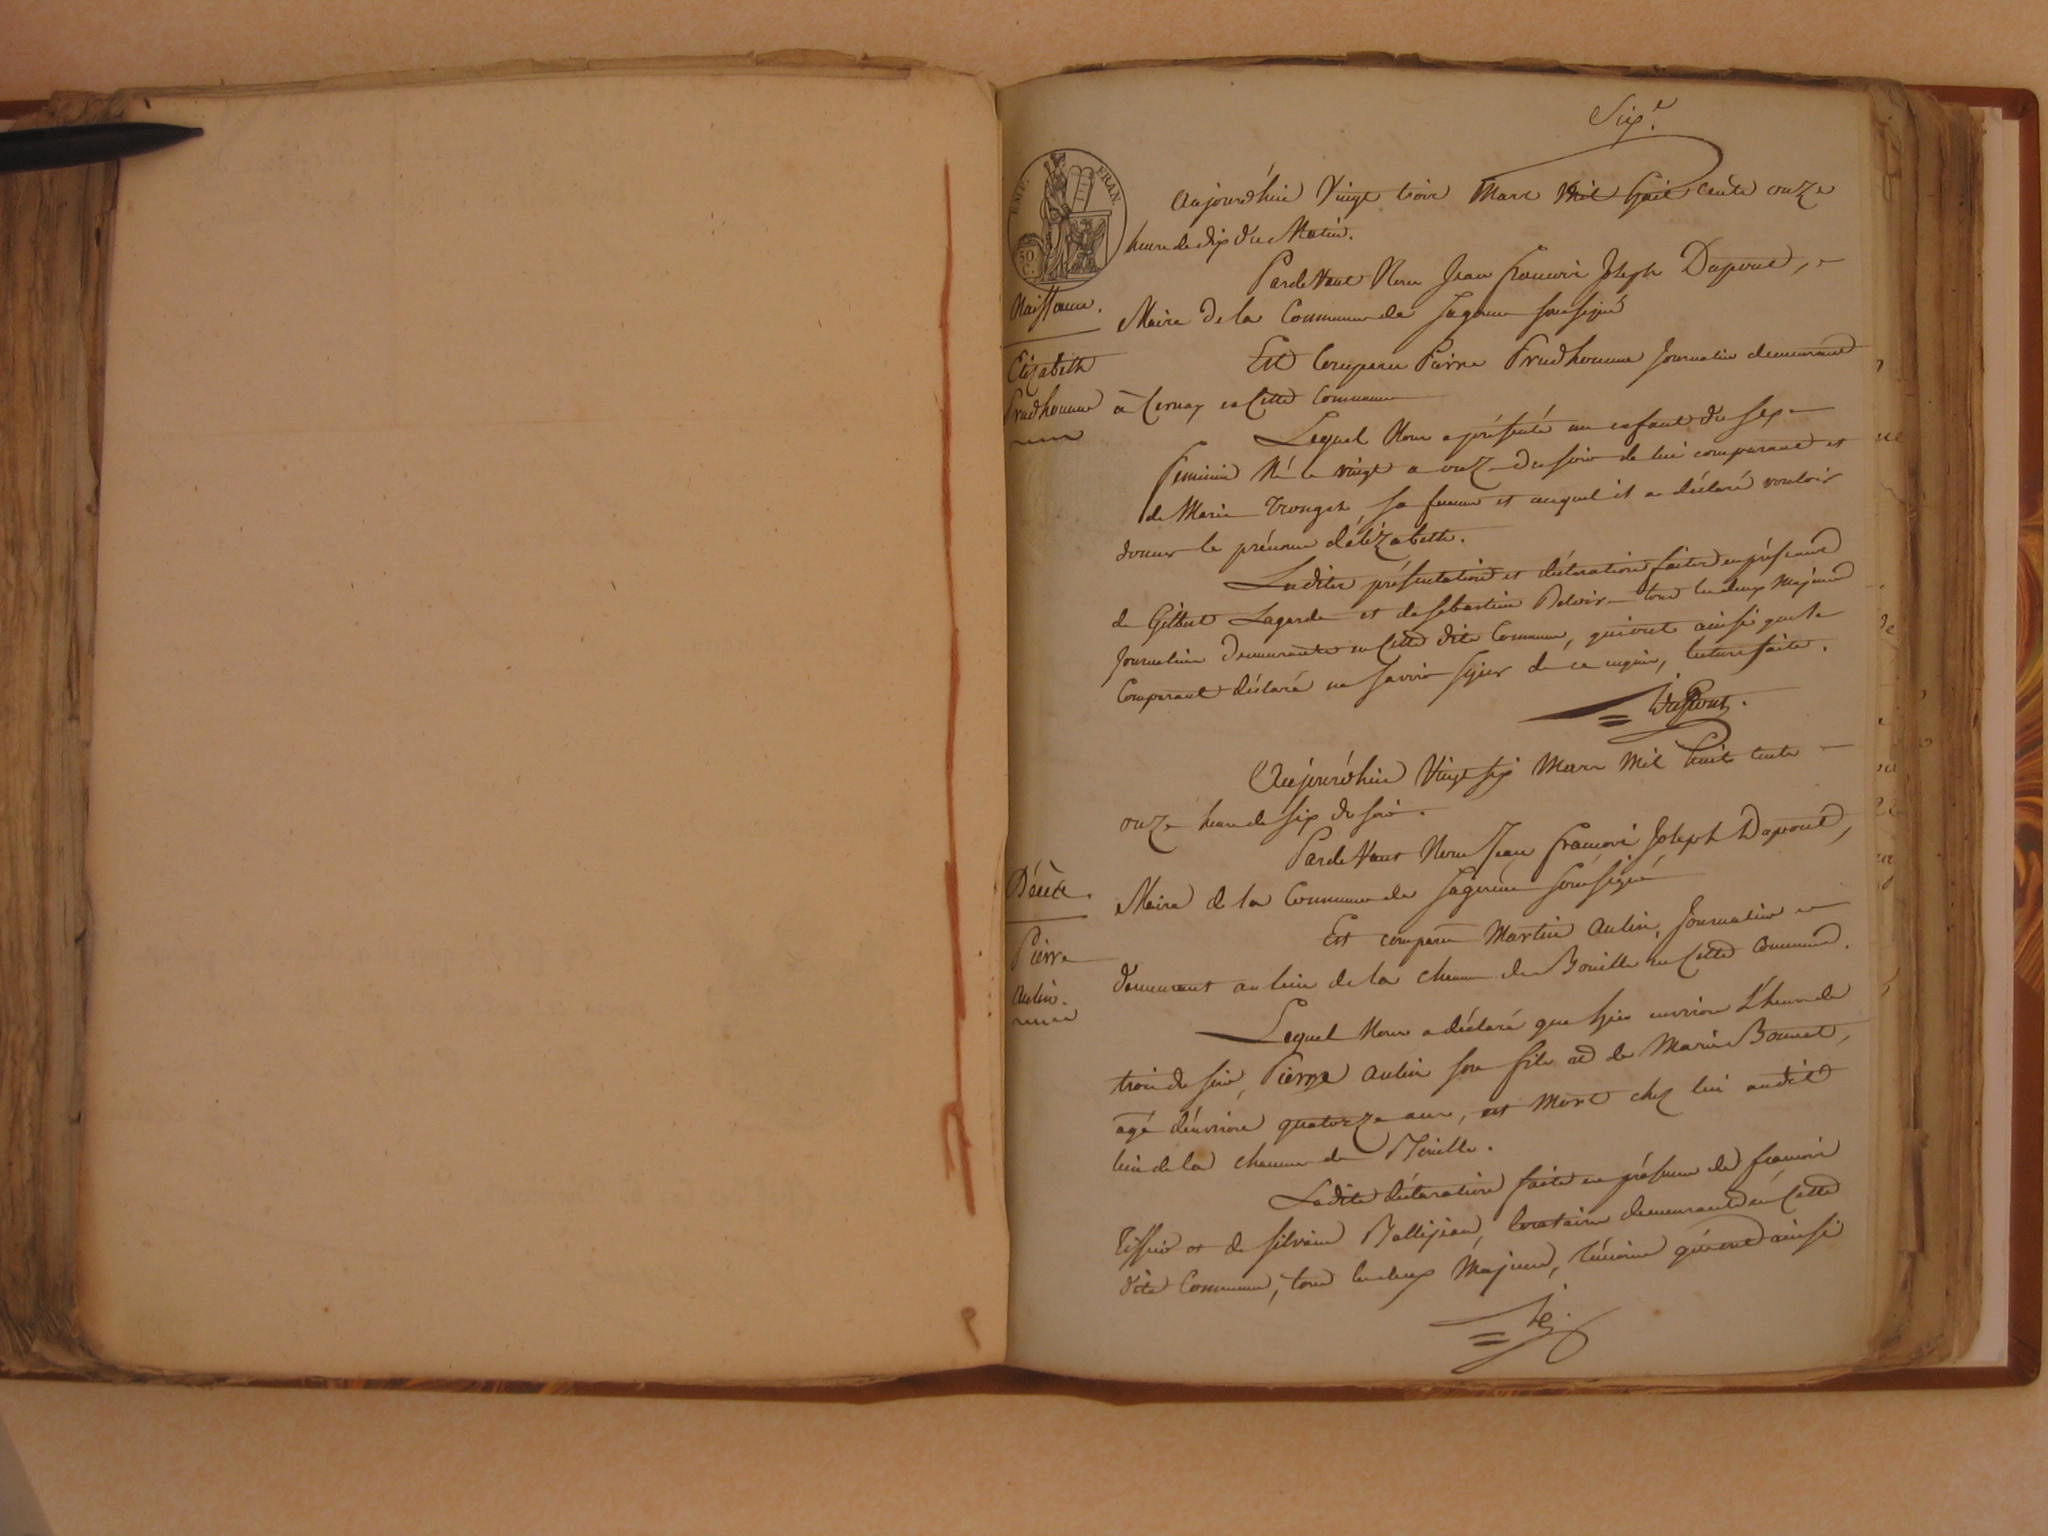 Six.e
EMP. FRAN.
50. C.
Aujourd'hui Vingt trois Mars Mil huit cents onze
heure de dix du Matin.
Pardevant Nous Jean Francois Joseph Dupont,
Naissance.
Maire de la Commune de soussigné
Elizabeth
Prudhomme
Est Comparu Pierre Prudhomme Journalier demeurant
à Cernay en Cette Commune
Lequel Nous a présenté un enfant du Sexe
Feminin Né le vingt a onze du soir de lui comparant et
de Marie sa femme et auquel il a déclaré vouloir
donner le prénom d'élizabeth.
Lesdites présentation et déclaration faites en présence
de Gilbert Lagarde et de sebastien tous les deux Majeurs
Journaliers Demeurants en Cette dite Commune, qui ont ainsi que le
Comparant déclaré ne savoir signer de ce requis, lecture faite.
Dupont.
Aujourd'hui Vingt six Mars Mil huit cents
onze heure de six du soir.
Pardevant Nous Jean francois Joseph Dupont,
Décès.
Maire de la Commune de soussigné
Pierre
aulin.
Est comparu Martin aulin, Journalier
demeurant au lieu de la chaume de en Cette Commune.
Lequel Nous a déclaré que hier environ L'heure de
trois du soir, Pierre aulin son fils et de Marie Bonnet,
agé d'environ quatorze ans, est Mort chez lui audit
lieu de la chaume de
Ladite déclaration faite en présence de francois
et de silvain locataires demeurants en Cette
dite Commune, tous les deux Majeurs, témoins qui ont ainsi